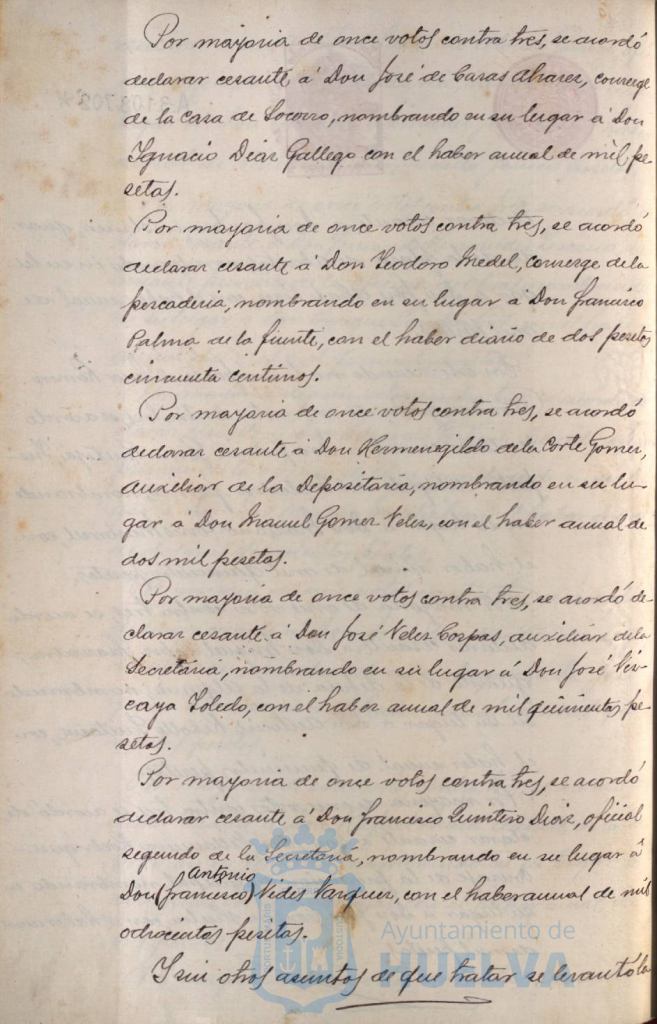 Por mayoria de once votos contra tres, se acordó
declarar cesante á Don José de Casas Alvarez, converge
de la Casa de Socorro, nombrando en su lugar á Don
Ignacio Diaz Gallego con el haber anual de mil pe
setas.
Por mayoria de once votos contra tres, se acordó
declarar cesante á Don Teodoro Medel, converge de la
pescaderia, nombrando en su lugar á Don Francisco
Palma de la Fuente, con el haber diario de dos pesetas
cincuenta centimos.
Por mayoria de once votos contra tres, se acordó
declarar cesante á Don Hermenegildo de la Corte Gomez,
auxiliar de la Depositaria, nombrando en su lu-
gar á Don Manuel Gomez Velez, con el haber anual de
dos mil pesetas.
Por mayoria de once votos contra tres, se acordó de-
clarar cesante á Don José Velez Corpas, auxiliar de la
Secretaria, nombrando en su lugar á Don José Viz-
caya Toledo, con el haber anual de mil quinientas pe-
setas.
Por mayoria de once votos contra tres, se acordó
declarar cesante á Don Francisco Quintero Dioiz, oficial
segundo de la Secretaria, nombrando en su lugar á
Antonio
Don (Francisco) Vides Vazquez, con el haber anual de mil
ochocientas pesetas.
Ayuntamiento de
HUELVA
Y sin otros asuntos de que tratar se levantó la